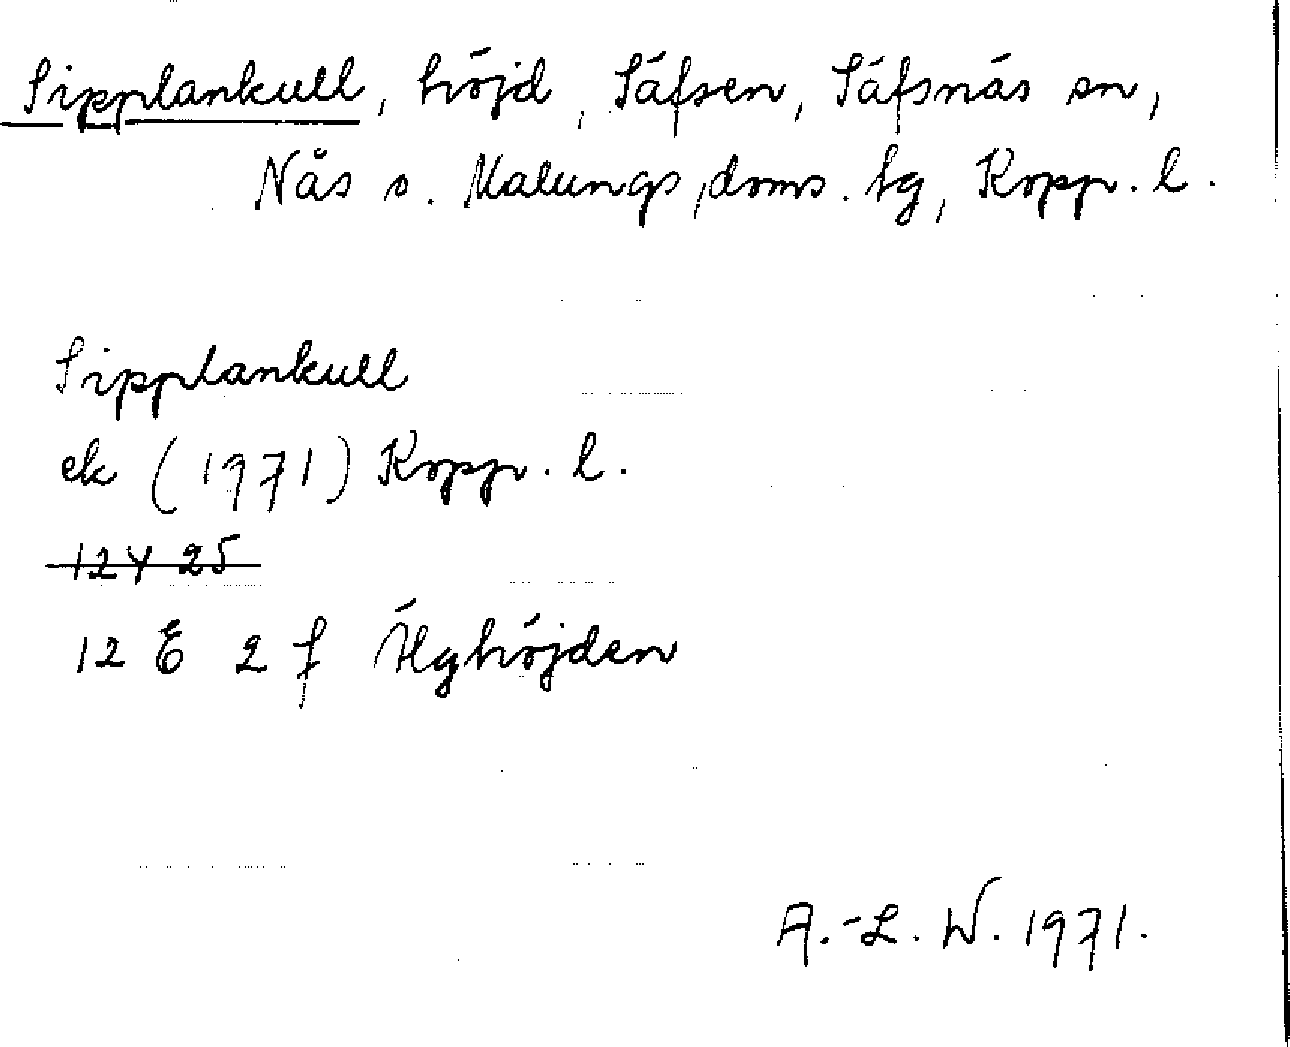 Sipplankull, höjd, Säfsen, Säfsnäs sn,
Nås o. Malungs doms. tg, Kopp. l.
Sipplankull
ek (1971) Kopp. l.
12Y 25
12 E 2 f Älghöjden
A.-L. W. 1971.